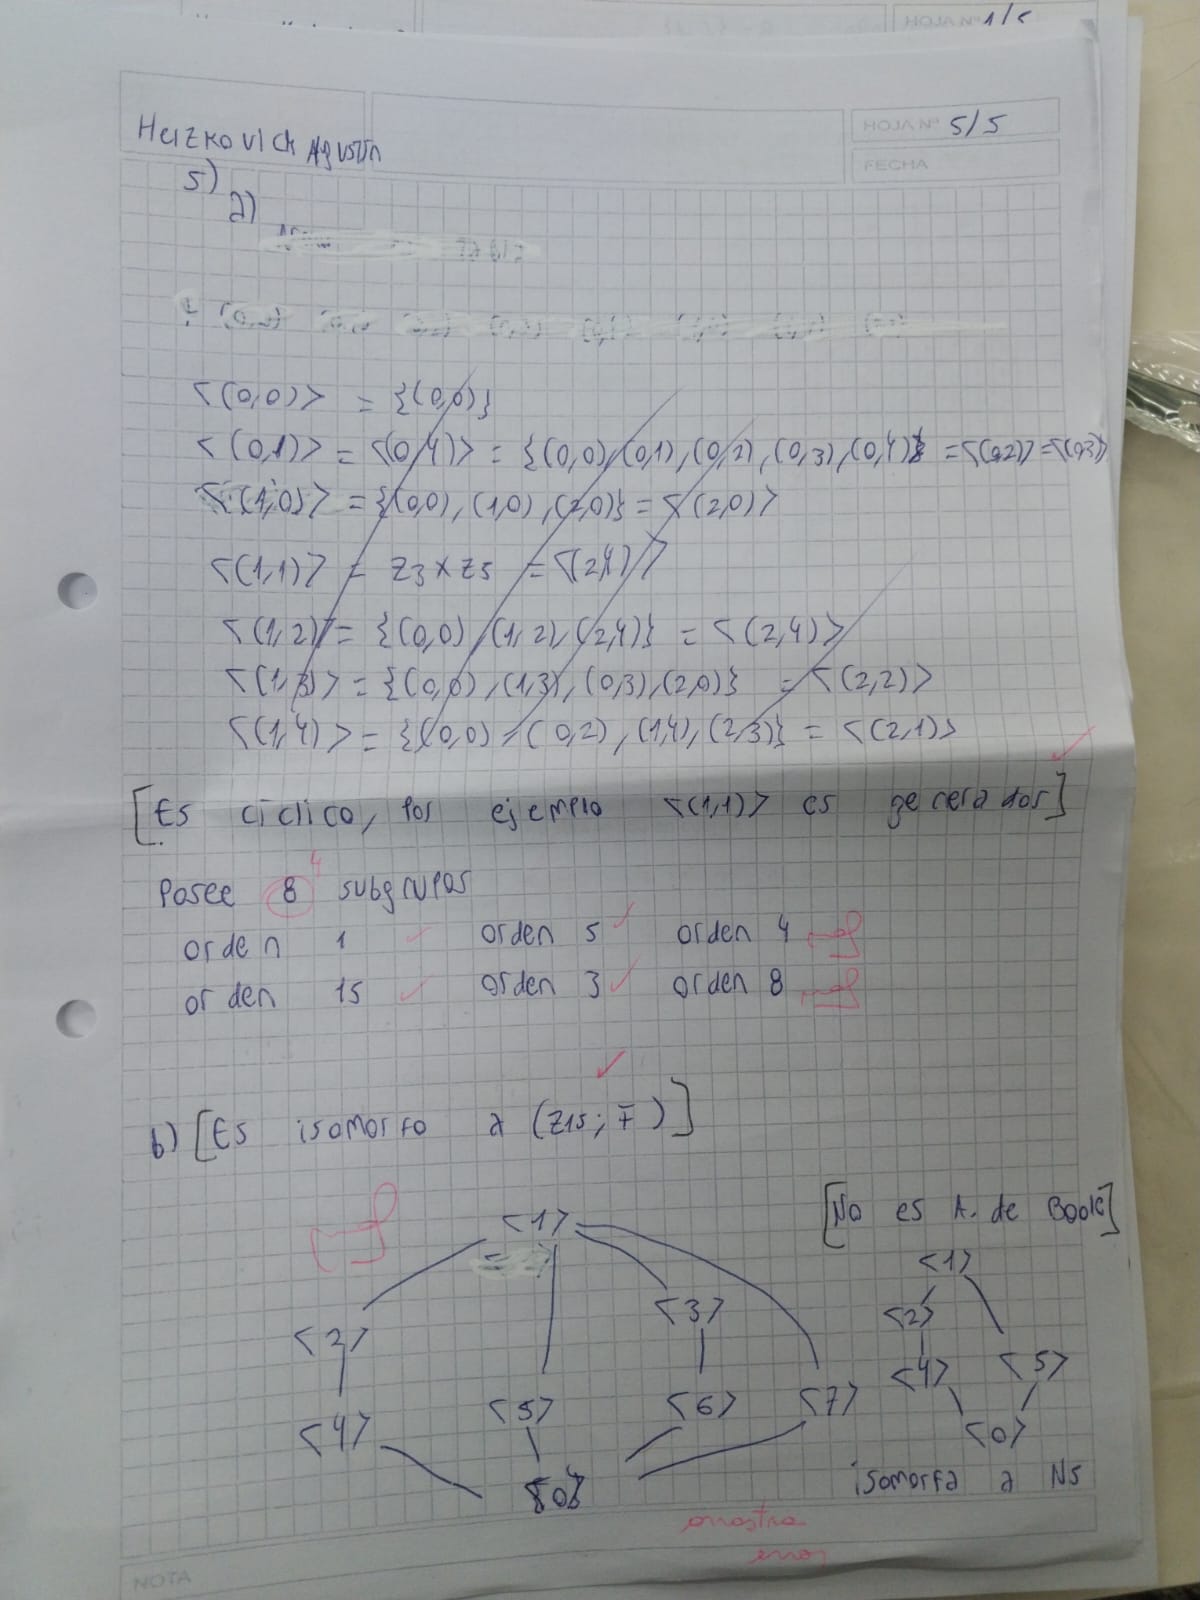 HOJA Nº 1/5
Herzkovich Agustin
HOJA Nº 5/5
FECHA
5)
a)
<(0,0)> = {(0,0)}
<(0,1)> = <(0,4)> = {(0,0),(0,1),(0,2),(0,3),(0,4)} = <(0,2)> = <(0,3)>
<(1,0)> = {(0,0),(1,0),(2,0)} = <(2,0)>
<(1,1)> = Z3 x Z5 = <(2,4)>
<(1,2)> = {(0,0),(1,2),(2,4)} = <(2,4)>
<(1,3)> = {(0,0),(1,3),(0,3),(2,0)} = <(2,2)>
<(1,4)> = {(0,0),(0,2),(1,4),(2,3)} = <(2,1)>
[Es ciclico, por ejemplo <(1,1)> es generador]
4
Posee 8 subgrupos
orden 1 orden 5 orden 4 mal
orden 15 orden 3 orden 8 mal
b) [Es isomorfo a (Z15; +)]
[No es A. de Boole]
<1>
<2> <3>
<4> <5> <6> <7>
{0}
<1>
<2>
<4> <5>
<0>
isomorfa a N5
arrastra
error
NOTA